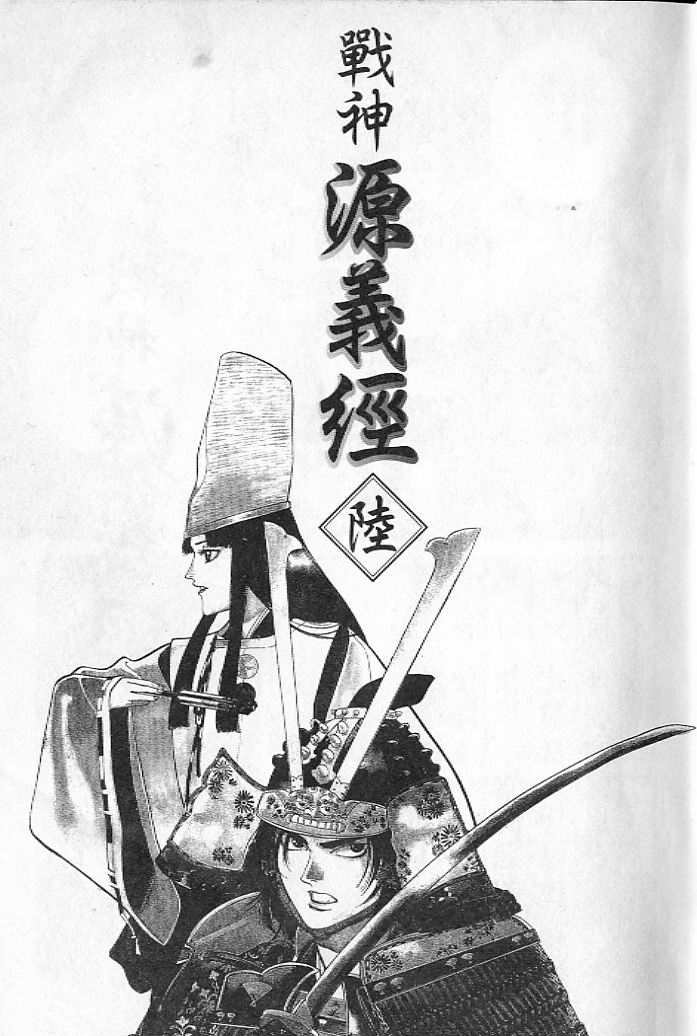 戰神
源義經
陸